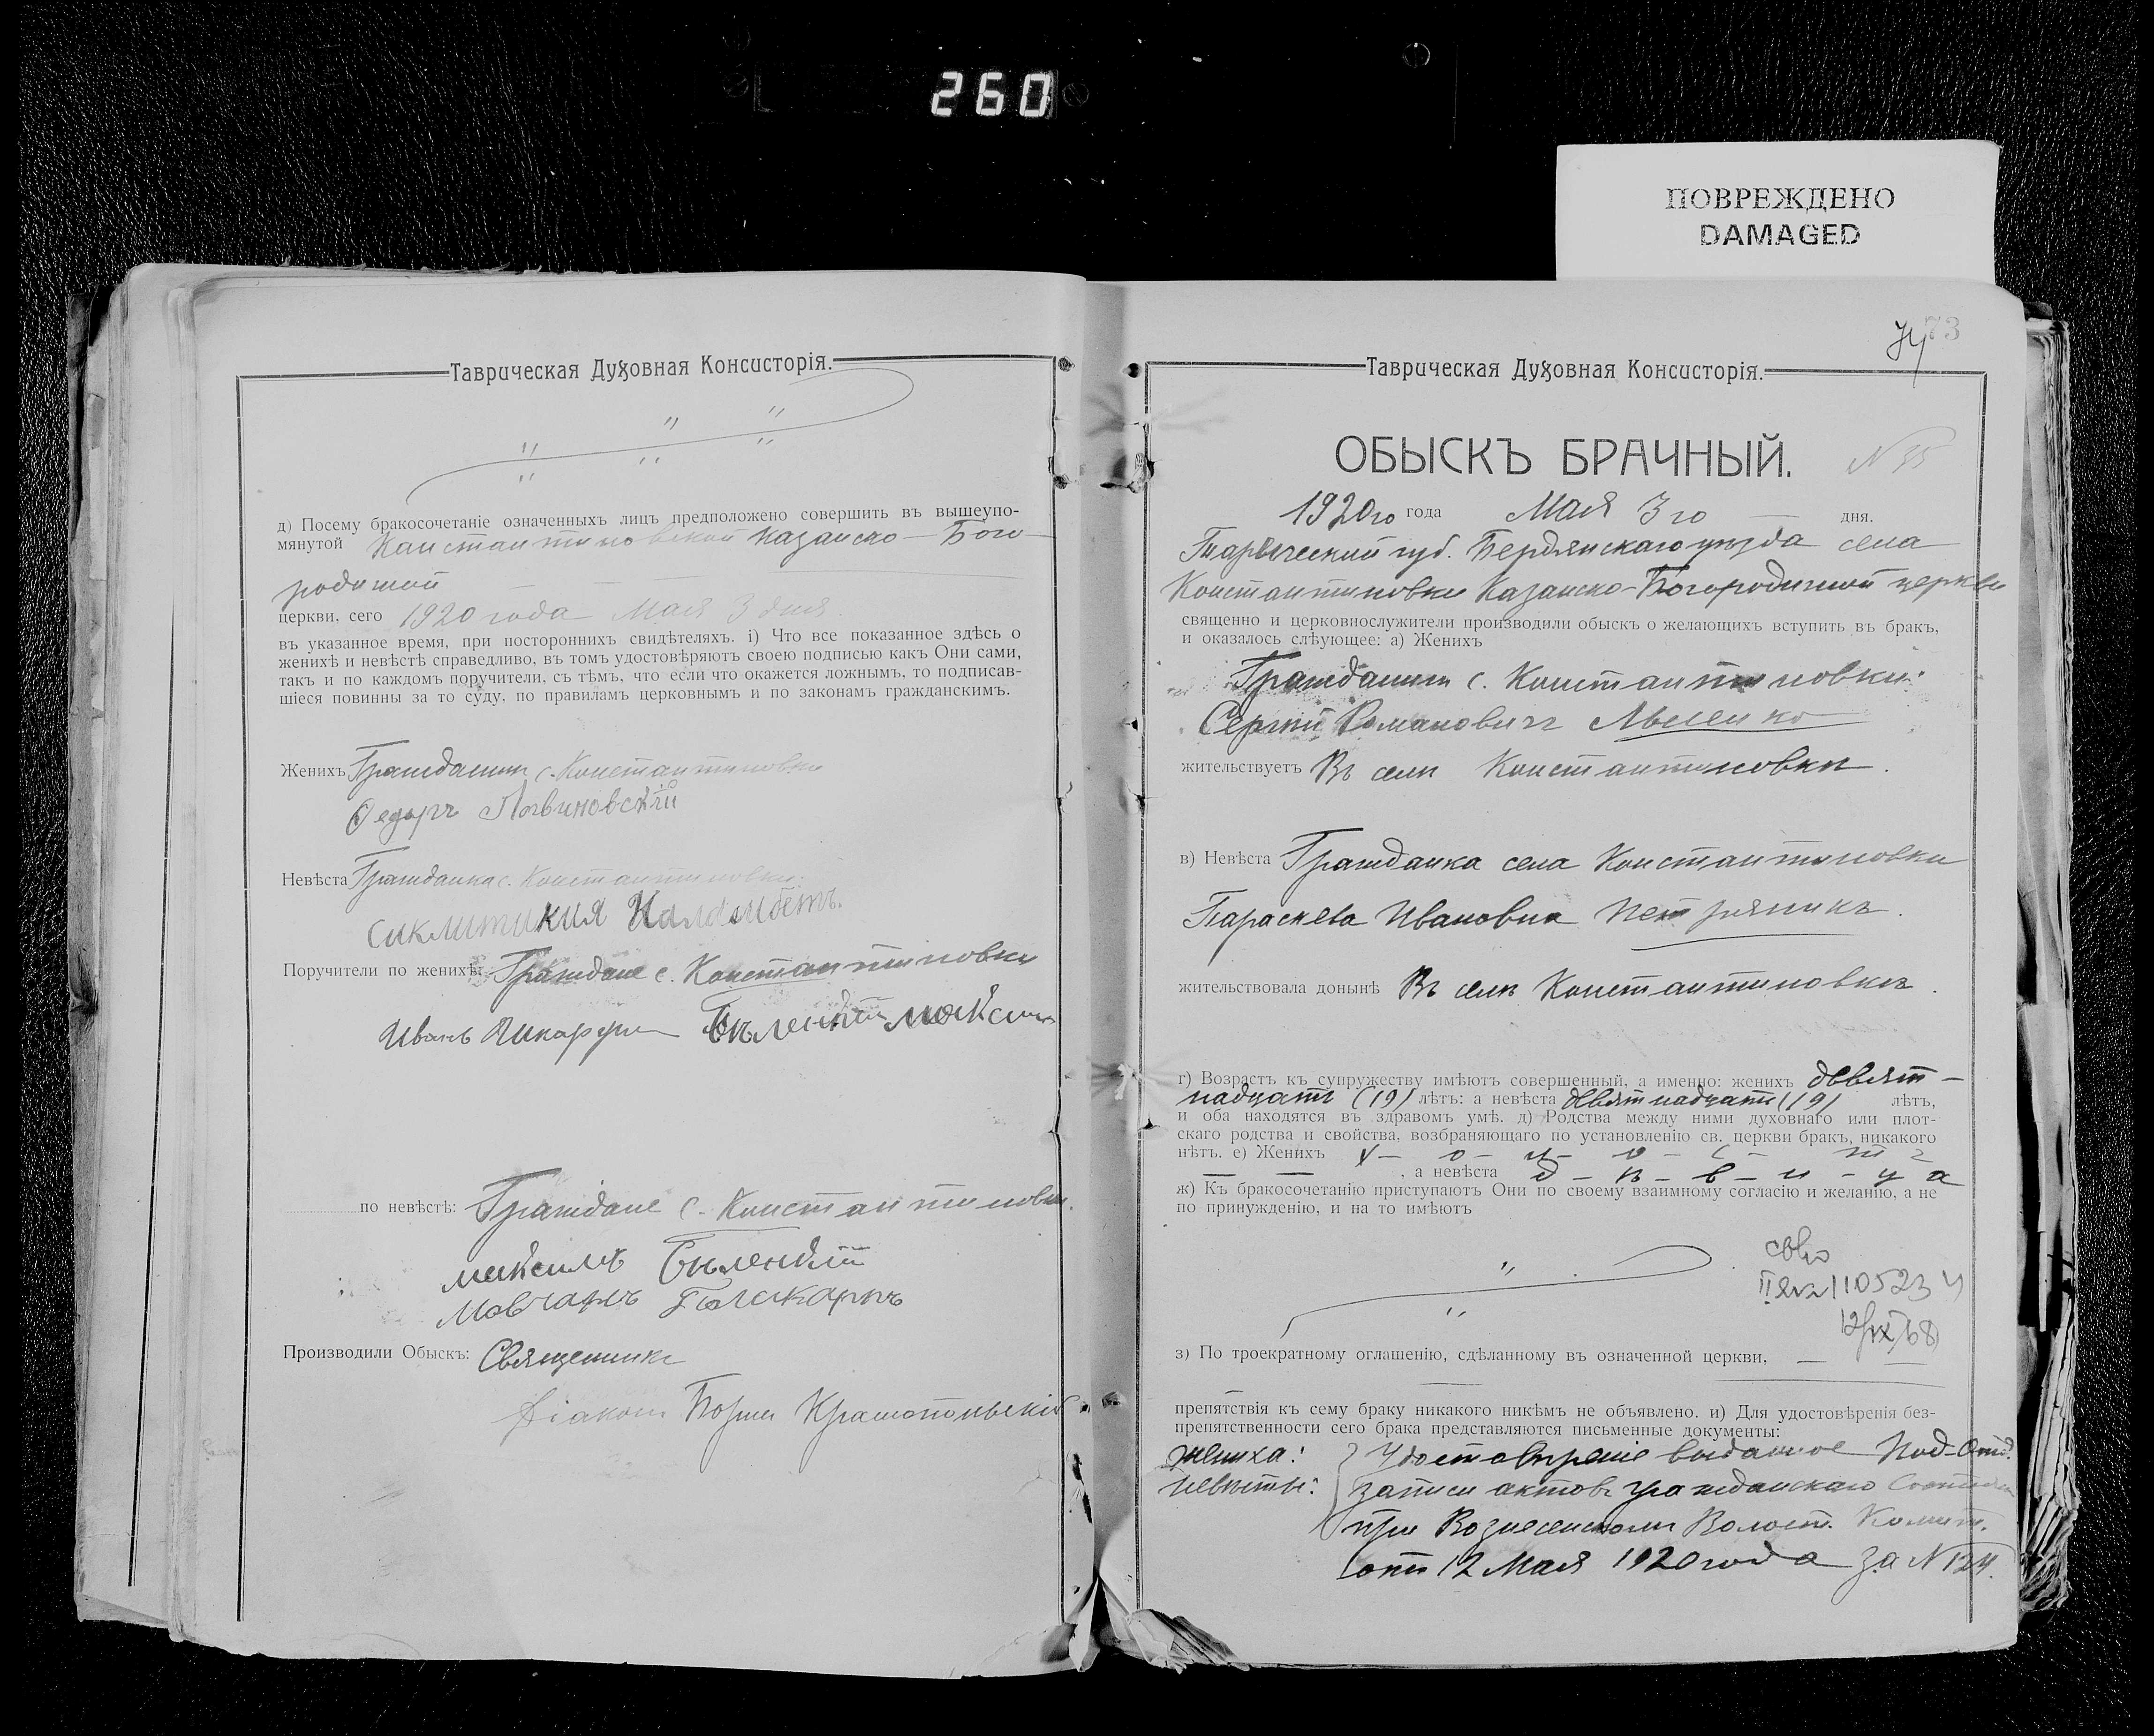 260
ПОВРЕЖДЕНО
DAMAGED
Таврическая Духовная Консисторія.
д) Посему бракосочетаніе означенныхъ лицъ предположено совершить въ вышеупо-
мянутой Константиновской Казанско-Бого-
родичной
церкви, сего 1920 года Мая 3 дня
въ указанное время, при постороннихъ свидѣтеляхъ. і) Что все показанное здѣсь о
женихѣ и невѣстѣ справедливо, въ томъ удостовѣряютъ своею подписью какъ Они сами,
такъ и по каждомъ поручители, съ тѣмъ, что если что окажется ложнымъ, то подписав-
шіеся повинны за то суду, по правиламъ церковнымъ и по законамъ гражданскимъ.
Женихъ Гражданинъ с. Константиновки
Федоръ
Невѣста Гражданка с. Константиновки
Поручители по женихѣ: Граждане с. Константиновки
Иванъ
по невѣстѣ: Граждане с. Константиновки
максимъ
Производили Обыскъ: Священникъ
Діаконъ
73
Таврическая Духовная Консисторія.
ОБЫСКЪ БРАЧНЫЙ. N 35
1920го года Мая 3го дня.
губ. Бердянскаго уѣзда села
Константиновки Казанско-Богородичной церкви
священно и церковнослужители производили обыскъ о желающихъ вступить въ бракъ,
и оказалось слѣующее: а) Женихъ
Гражданинъ с. Константиновки:
Сергѣй Романовичъ
жительствуетъ Въ селѣ Константиновкѣ.
в) Невѣста Гражданка села Константиновки
Параскева Ивановна
жительствовала донынѣ Въ селѣ Константиновкѣ.
г) Возрастъ къ супружеству имѣютъ совершенный, а именно: женихъ девят-
надцать (19) лѣтъ: а невѣста девятнадцать (19) лѣтъ,
и оба находятся въ здравомъ умѣ. д) Родства между ними духовнаго или плот-
скаго родства и свойства, возбраняющаго по установленію св. церкви бракъ, никакого
нѣтъ. е) Женихъ х - о - л - о - с - т ъ
, а невѣста д - ѣ - в - и - ц а
ж) Къ бракосочетанію приступаютъ Они по своему взаимному согласію и желанію, а не
по принужденію, и на то имѣютъ
з) По троекратному оглашенію, сдѣланному въ означенной церкви,
препятствія къ сему браку никакого никѣмъ не объявлено. и) Для удостовѣренія без-
препятственности сего брака представляются письменные документы:
жениха: Удостовѣреніе выданное Под-Отд.
невѣсты: записи актовъ гражданскаго
при Вознесенскомъ Волост. Комит.
отъ 12 Мая 1920 года за N 124.